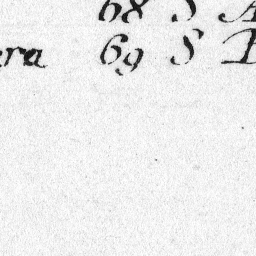 68 S A
era 69 S